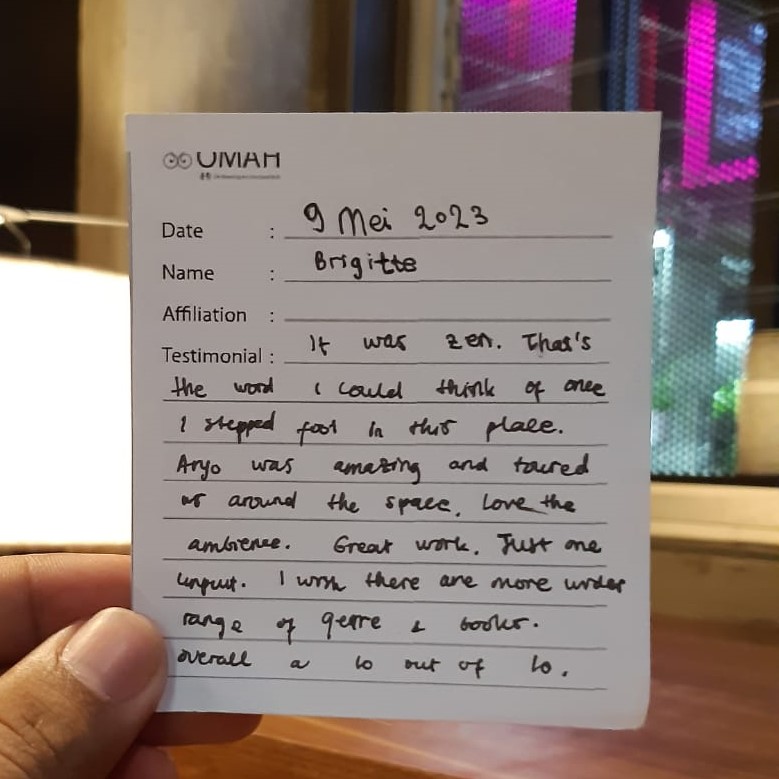 OMAH
Date : 9 Mei 2023
Name : Brigitte
Affiliation :
Testimonial : It was zen. That's
the word I could think of once
I stepped foot in this place.
Aryo was amazing and toured
us around the space. Love the
ambience. Great work. Just one
input. I wish there are more wider
range of genre & books.
Overall a 10 out of 10.